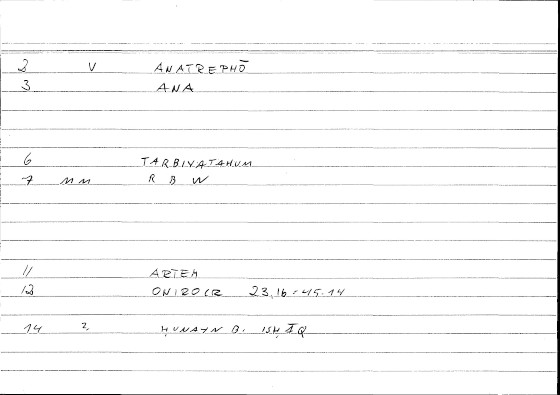 2 V ANATREPHŌ
3 ANA
6 TARBIYATAHUM
7 MM R B W
11 ARTEM
12 ONIROCR 23,16 = 45.14
14 2, ḤUNAYN B. ISḤĀQ